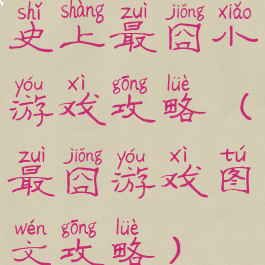 shǐ shàng zuì jiǒng xiǎo
史上最囧小
yóu xì gōng lüè
游戏攻略（
zuì jiǒng yóu xì tú
最囧游戏图
wén gōng lüè
文攻略）